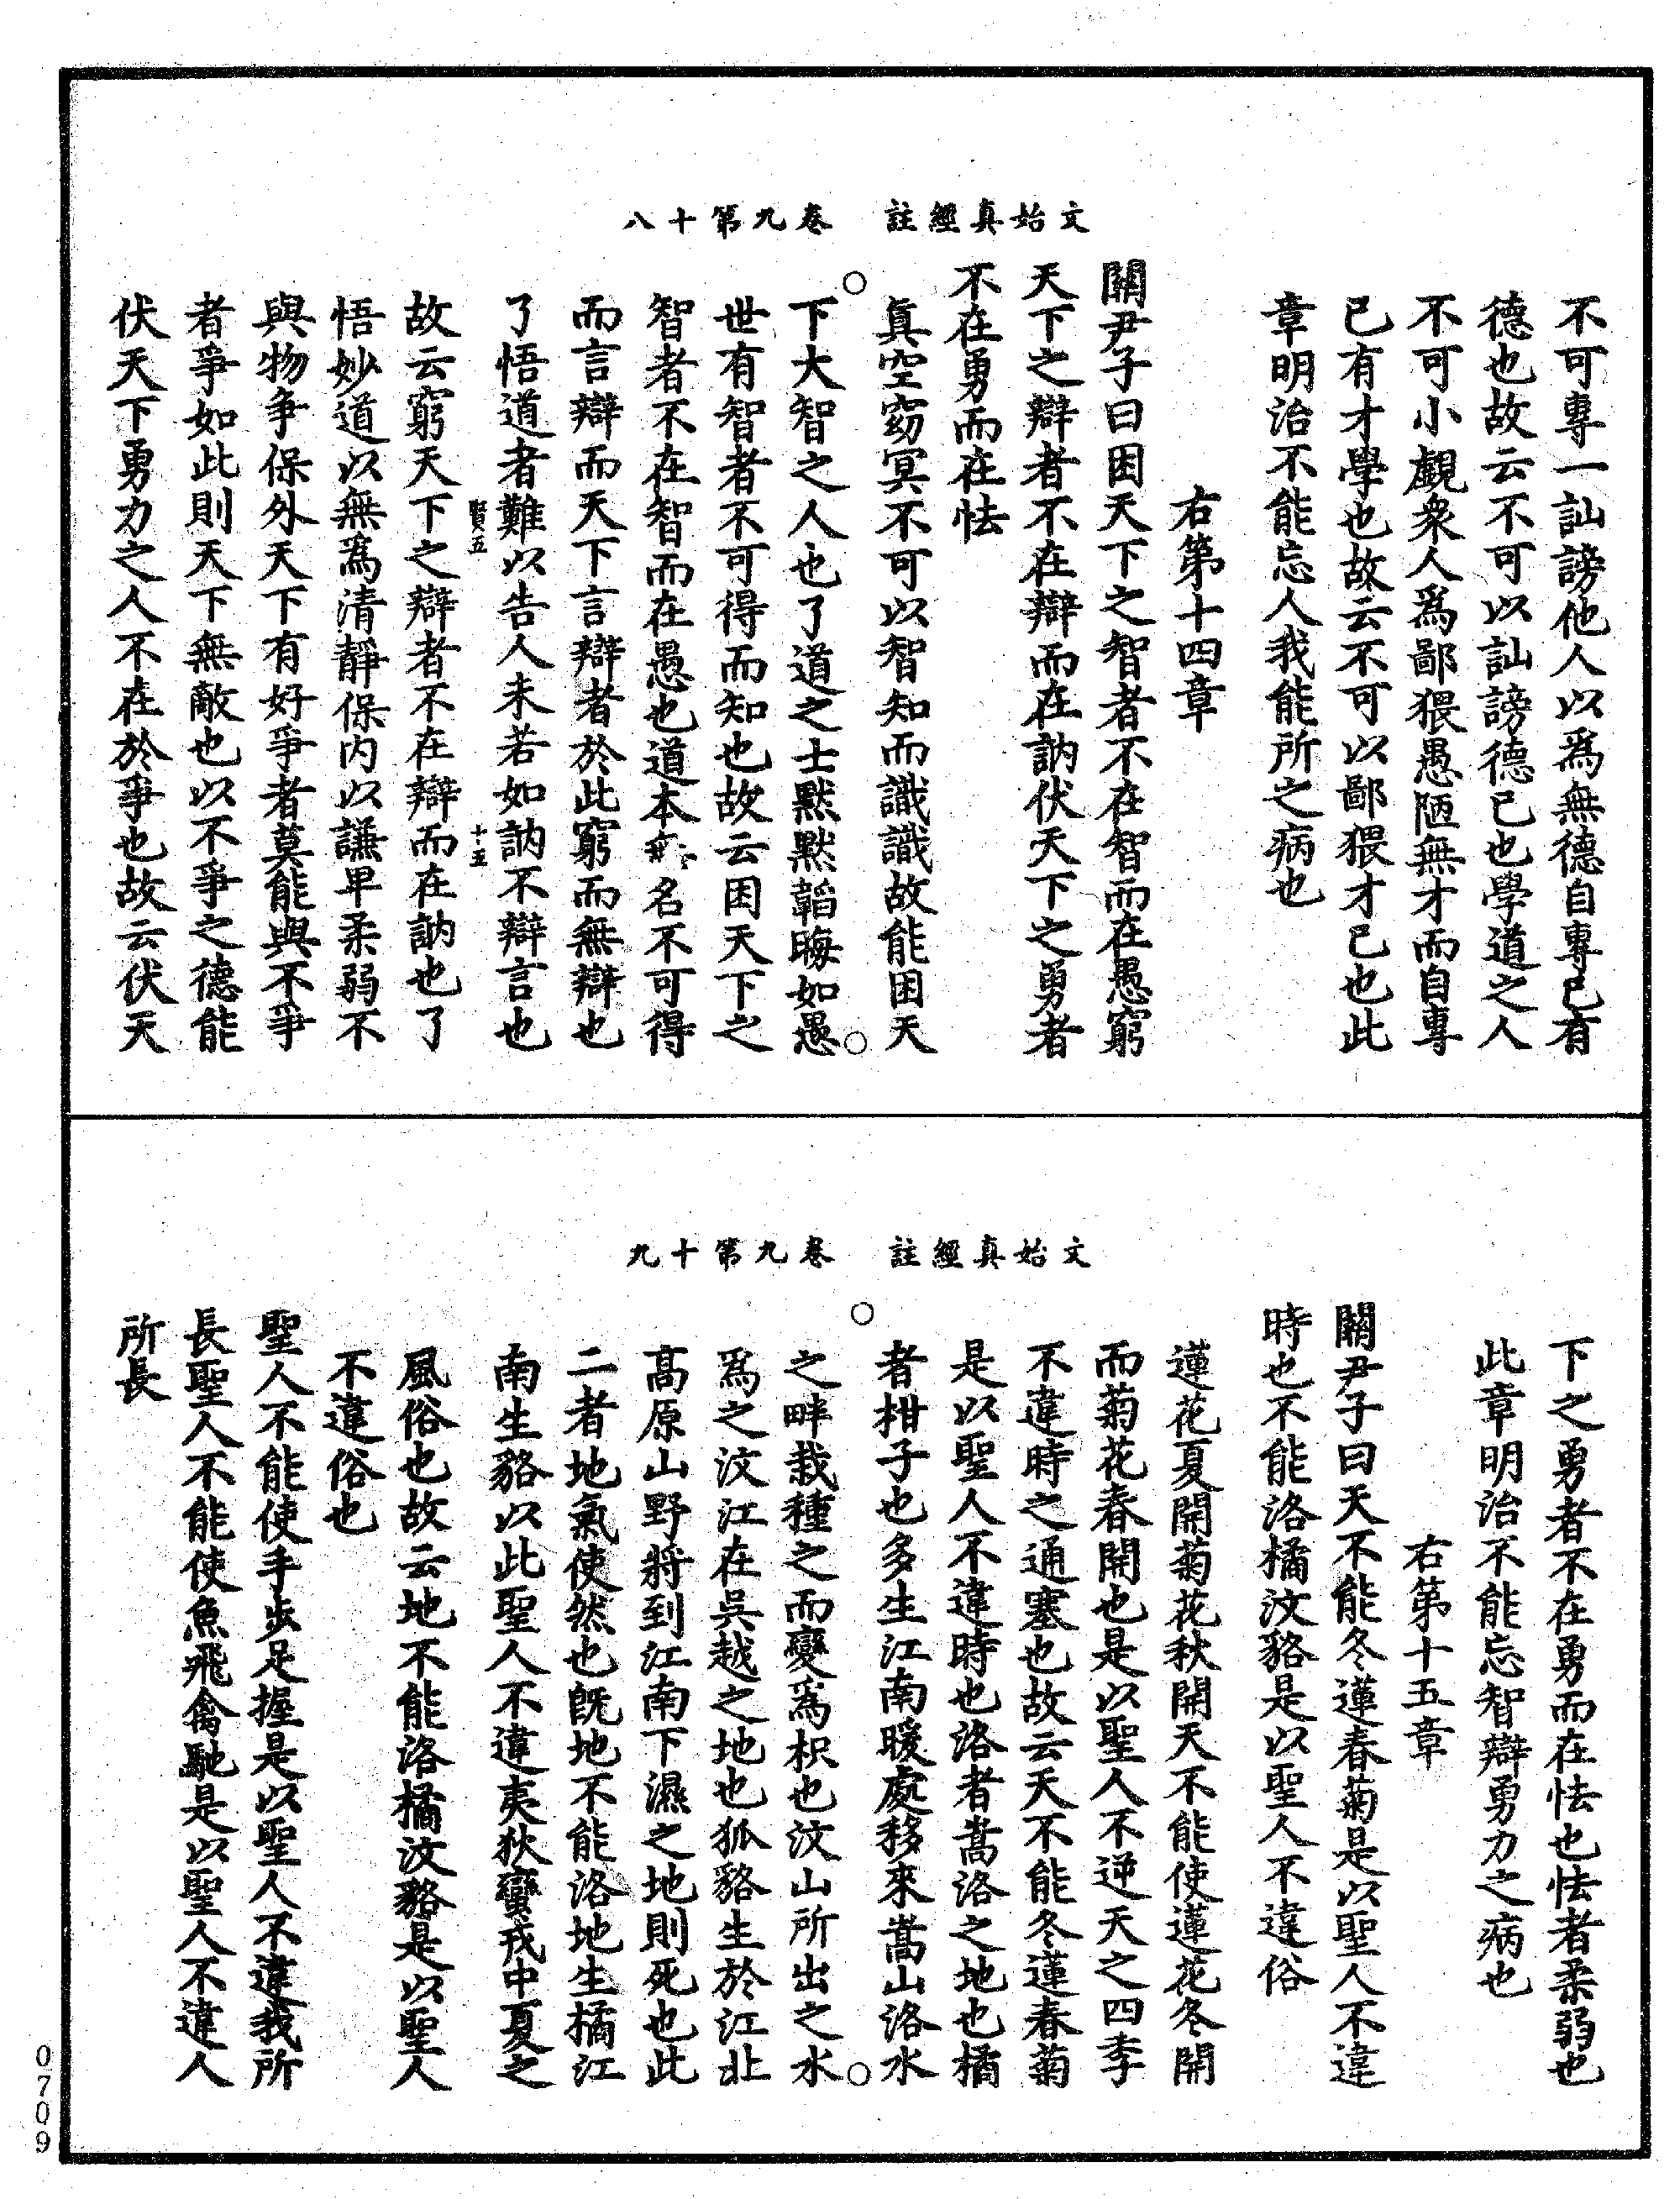 文始真經註　卷九第十八
不可專一訕謗他人以爲無德自專己有
德也故云不可以訕謗德己也學道之人
不可小覷衆人爲鄙猥愚陋無才而自專
已有才學也故云不可以鄙猥才己也此
章明治不能忘人我能所之病也
右第十四章
關尹子曰困天下之智者不在智而在愚窮
天下之辯者不在辯而在訥伏天下之勇者
不在勇而在怯
真空窈冥不可以智知而識識故能困天
下大智之人也了道之士默默韜晦如愚
世有智者不可得而知也故云困天下之
智者不在智而在愚也道本無名不可得
而言辯而天下言辯者於此窮而無辯也
了悟道者難以告人未若如訥不辯言也
賢五　十五
故云窮天下之辯者不在辯而在訥也了
悟妙道以無爲清靜保內以謙卑柔弱不
與物爭保外天下有好爭者莫能與不爭
者爭如此則天下無敵也以不爭之德能
伏天下勇力之人不在於爭也故云伏天
文始真經註　卷九第十九
下之勇者不在勇而在怯也怯者柔弱也
此章明治不能忘智辯勇力之病也
右第十五章
關尹子曰天不能冬蓮春菊是以聖人不違
時也不能洛橘汶貉是以聖人不違俗
蓮花夏開菊花秋開天不能使蓮花冬開
而菊花春開也是以聖人不逆天之四季
不違時之通塞也故云天不能冬蓮春菊
是以聖人不違時也洛者嵩洛之地也橘
者柑子也多生江南暖處移來嵩山洛水
之畔栽種之而變爲枳也汶山所出之水
爲之汶江在吳越之地也狐貉生於江北
高原山野將到江南下濕之地則死也此
二者地氣使然也旣地不能洛地生橘江
南生貉以此聖人不違夷狄蠻戎中夏之
風俗也故云地不能洛橘汶貉是以聖人
不違俗也
聖人不能使手步足握是以聖人不違我所
長聖人不能使魚飛禽馳是以聖人不違人
所長
0709